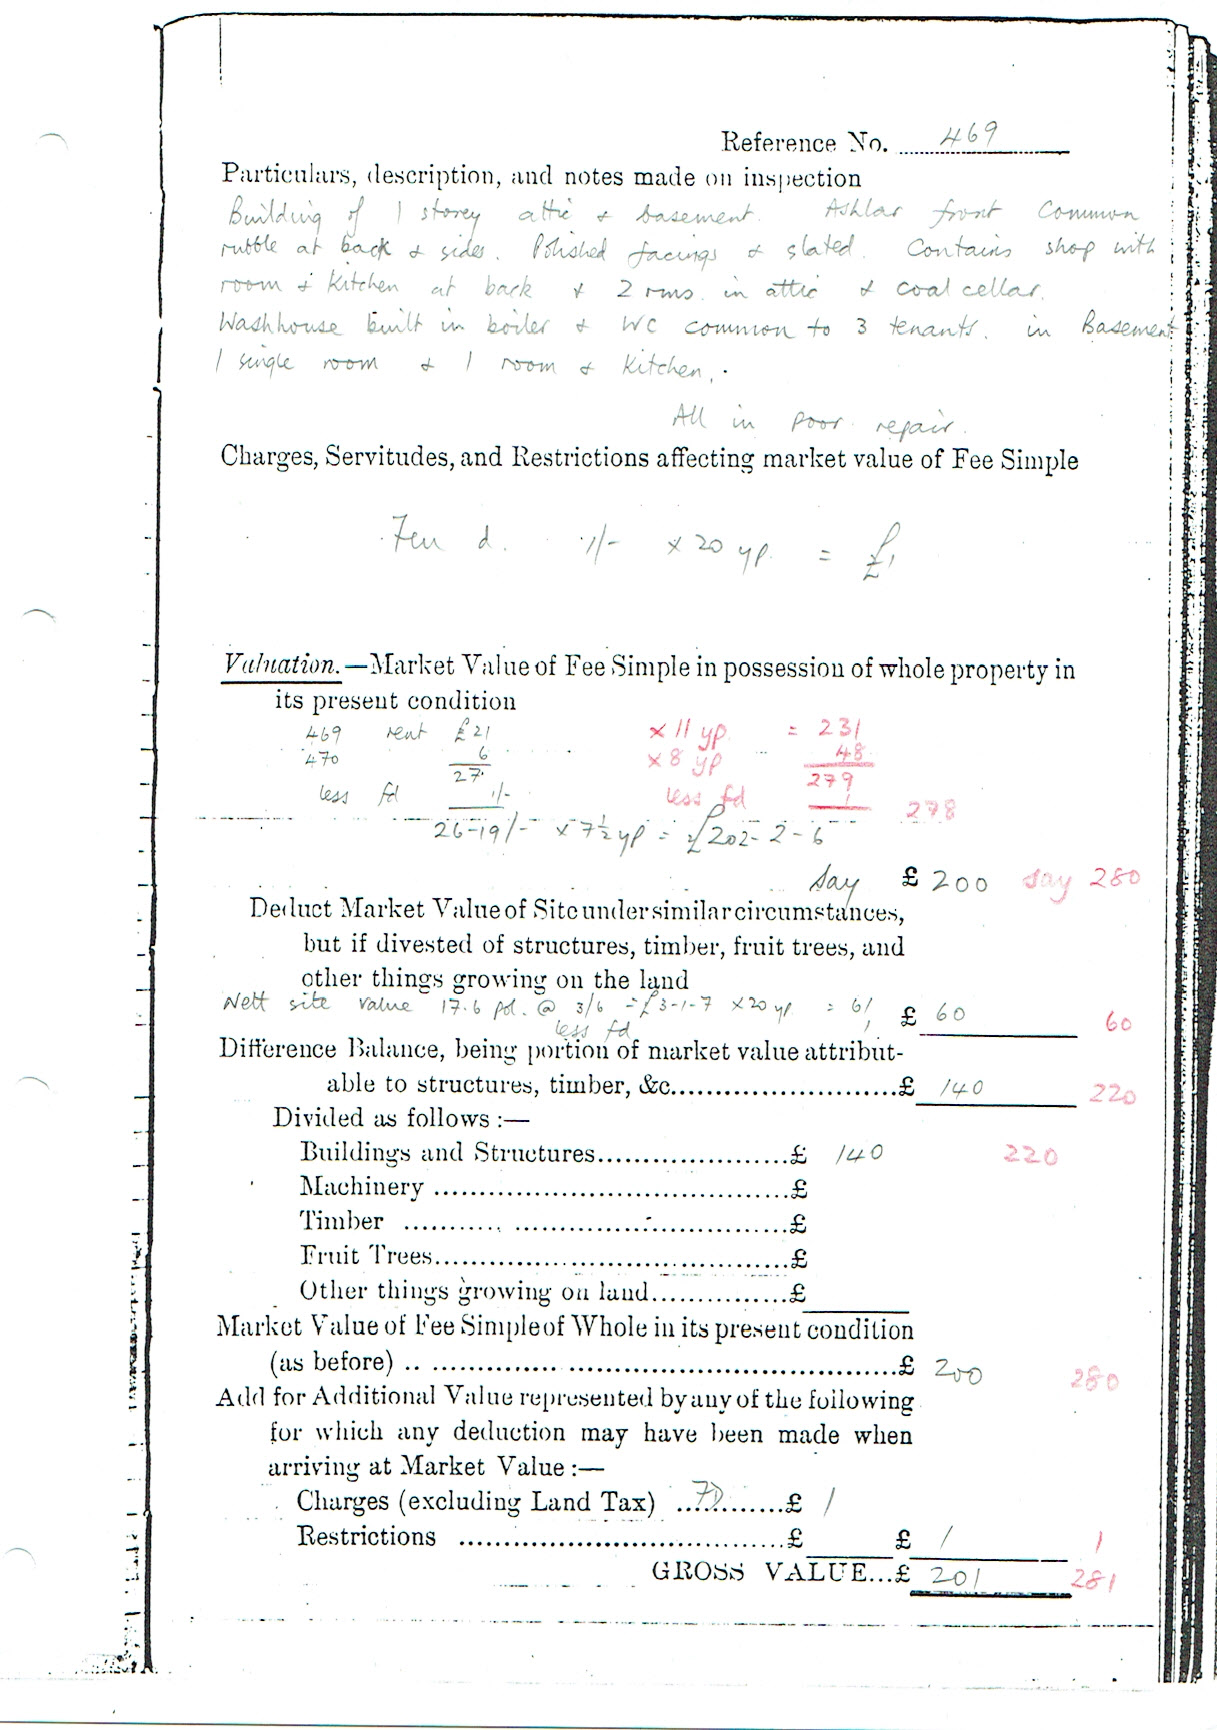 Reference No. 469
Particulars, description, and notes made on inspection
Building of 1 storey attic & basement. Ashlar front Common
rubble at back & sides. Polished facings & slated. Contains shop with
room & Kitchen at back & 2 rms. in attic & coal cellar.
Washhouse built in boiler & WC common to 3 tenants. in Basement
1 single room & 1 room & Kitchen.
All in poor repair.
Charges, Servitudes, and Restrictions affecting market value of Fee Simple
Feu d. 1/- x 20 yp. = £1
Valuation.—Market Value of Fee Simple in possession of whole property in
its present condition
469 rent £21 x 11 yp. = 231
470 6 x 8 yp 48
27 279
less fd 1/- less fd 1 278
26-19/- x 7½ yp = £202-2-6
Say £ 200 say 280
Deduct Market Value of Site under similar circumstances,
but if divested of structures, timber, fruit trees, and
other things growing on the land
Nett site value 17.6 pol. @ 3/6 = £3-1-7 x 20 yp = 61 £ 60 60
less fd 1
Difference Balance, being portion of market value attribut-
able to structures, timber, &c. £ 140 220
Divided as follows :—
Buildings and Structures £ 140 220
Machinery £
Timber £
Fruit Trees £
Other things growing on land £
Market Value of Fee Simple of Whole in its present condition
(as before) £ 200 280
Add for Additional Value represented by any of the following
for which any deduction may have been made when
arriving at Market Value :—
Charges (excluding Land Tax) FD £ 1
Restrictions £ £ 1 1
GROSS VALUE...£ 201 281